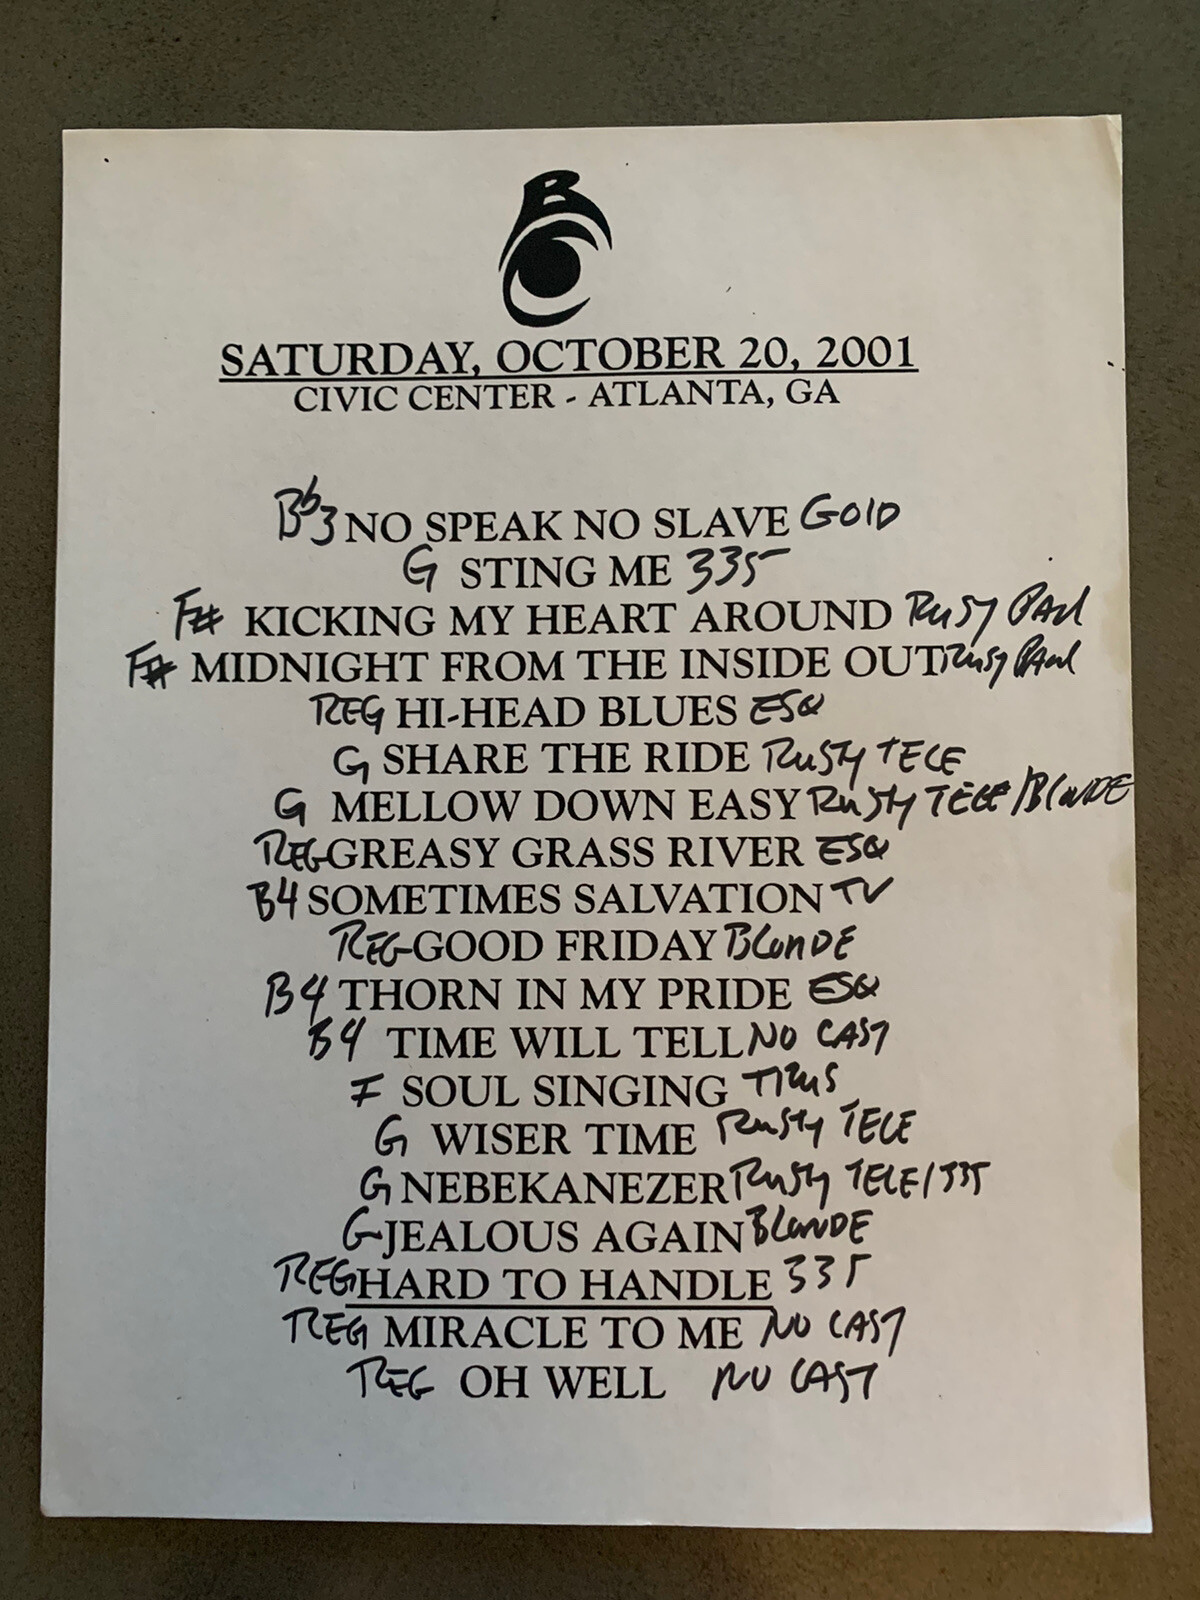 B
SATURDAY, OCTOBER 20, 2001
CIVIC CENTER - ATLANTA, GA
Bb3 NO SPEAK NO SLAVE GOLD
G STING ME 335
F# KICKING MY HEART AROUND RUSTY PAUL
F# MIDNIGHT FROM THE INSIDE OUT RUSTY PAUL
REG HI-HEAD BLUES ESQ
G SHARE THE RIDE RUSTY TELE
G MELLOW DOWN EASY RUSTY TELE/BLONDE
REG-GREASY GRASS RIVER ESQ
B4 SOMETIMES SALVATION TV
REG-GOOD FRIDAY BLONDE
B4 THORN IN MY PRIDE ESQ
B4 TIME WILL TELL NO CAST
F SOUL SINGING
G WISER TIME RUSTY TELE
G NEBEKANEZER RUSTY TELE/335
G-JEALOUS AGAIN BLONDE
REG HARD TO HANDLE 335
REG MIRACLE TO ME NO CAST
REG OH WELL NO CAST